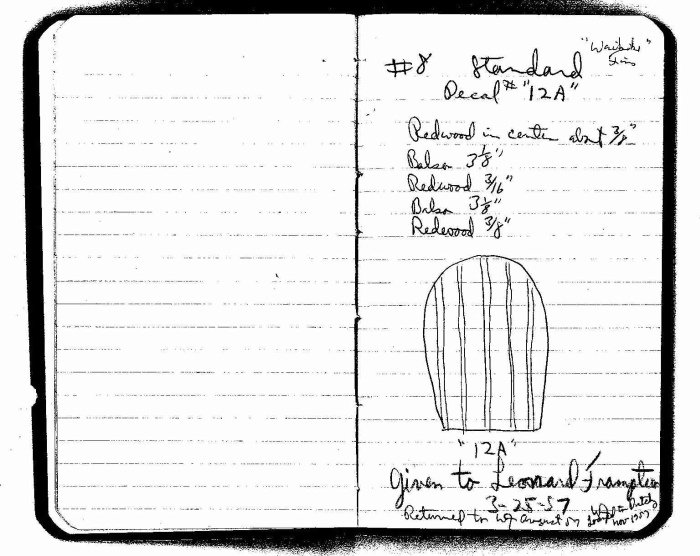 "Waikiki"
#8 Standard
Decal # "12A"
Redwood in center about 3/8"
Balsa 3 1/8"
Redwood 3/16"
Balsa 3 1/8"
Redwood 3/8"
"12A"
Given to Leonard Frampton
3-25-57
Returned to August 57
to Dutch
Nov 1957